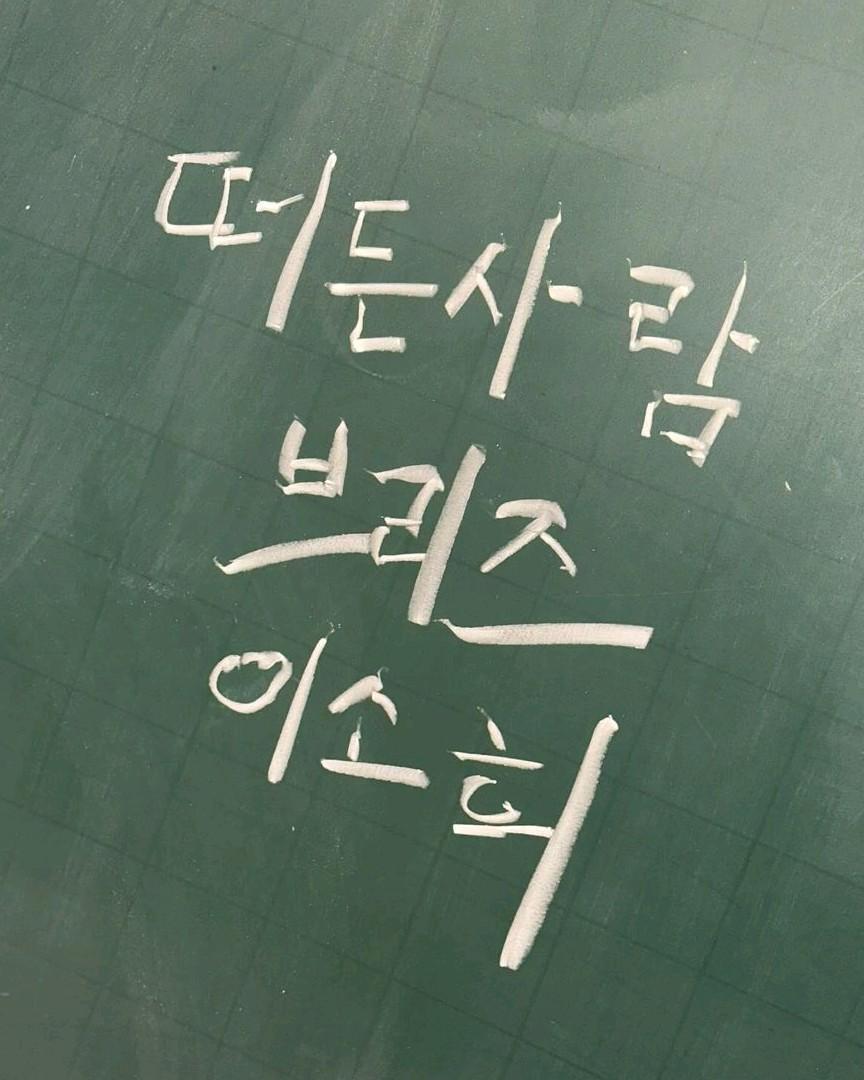 떠든사람
브리즈
이소희